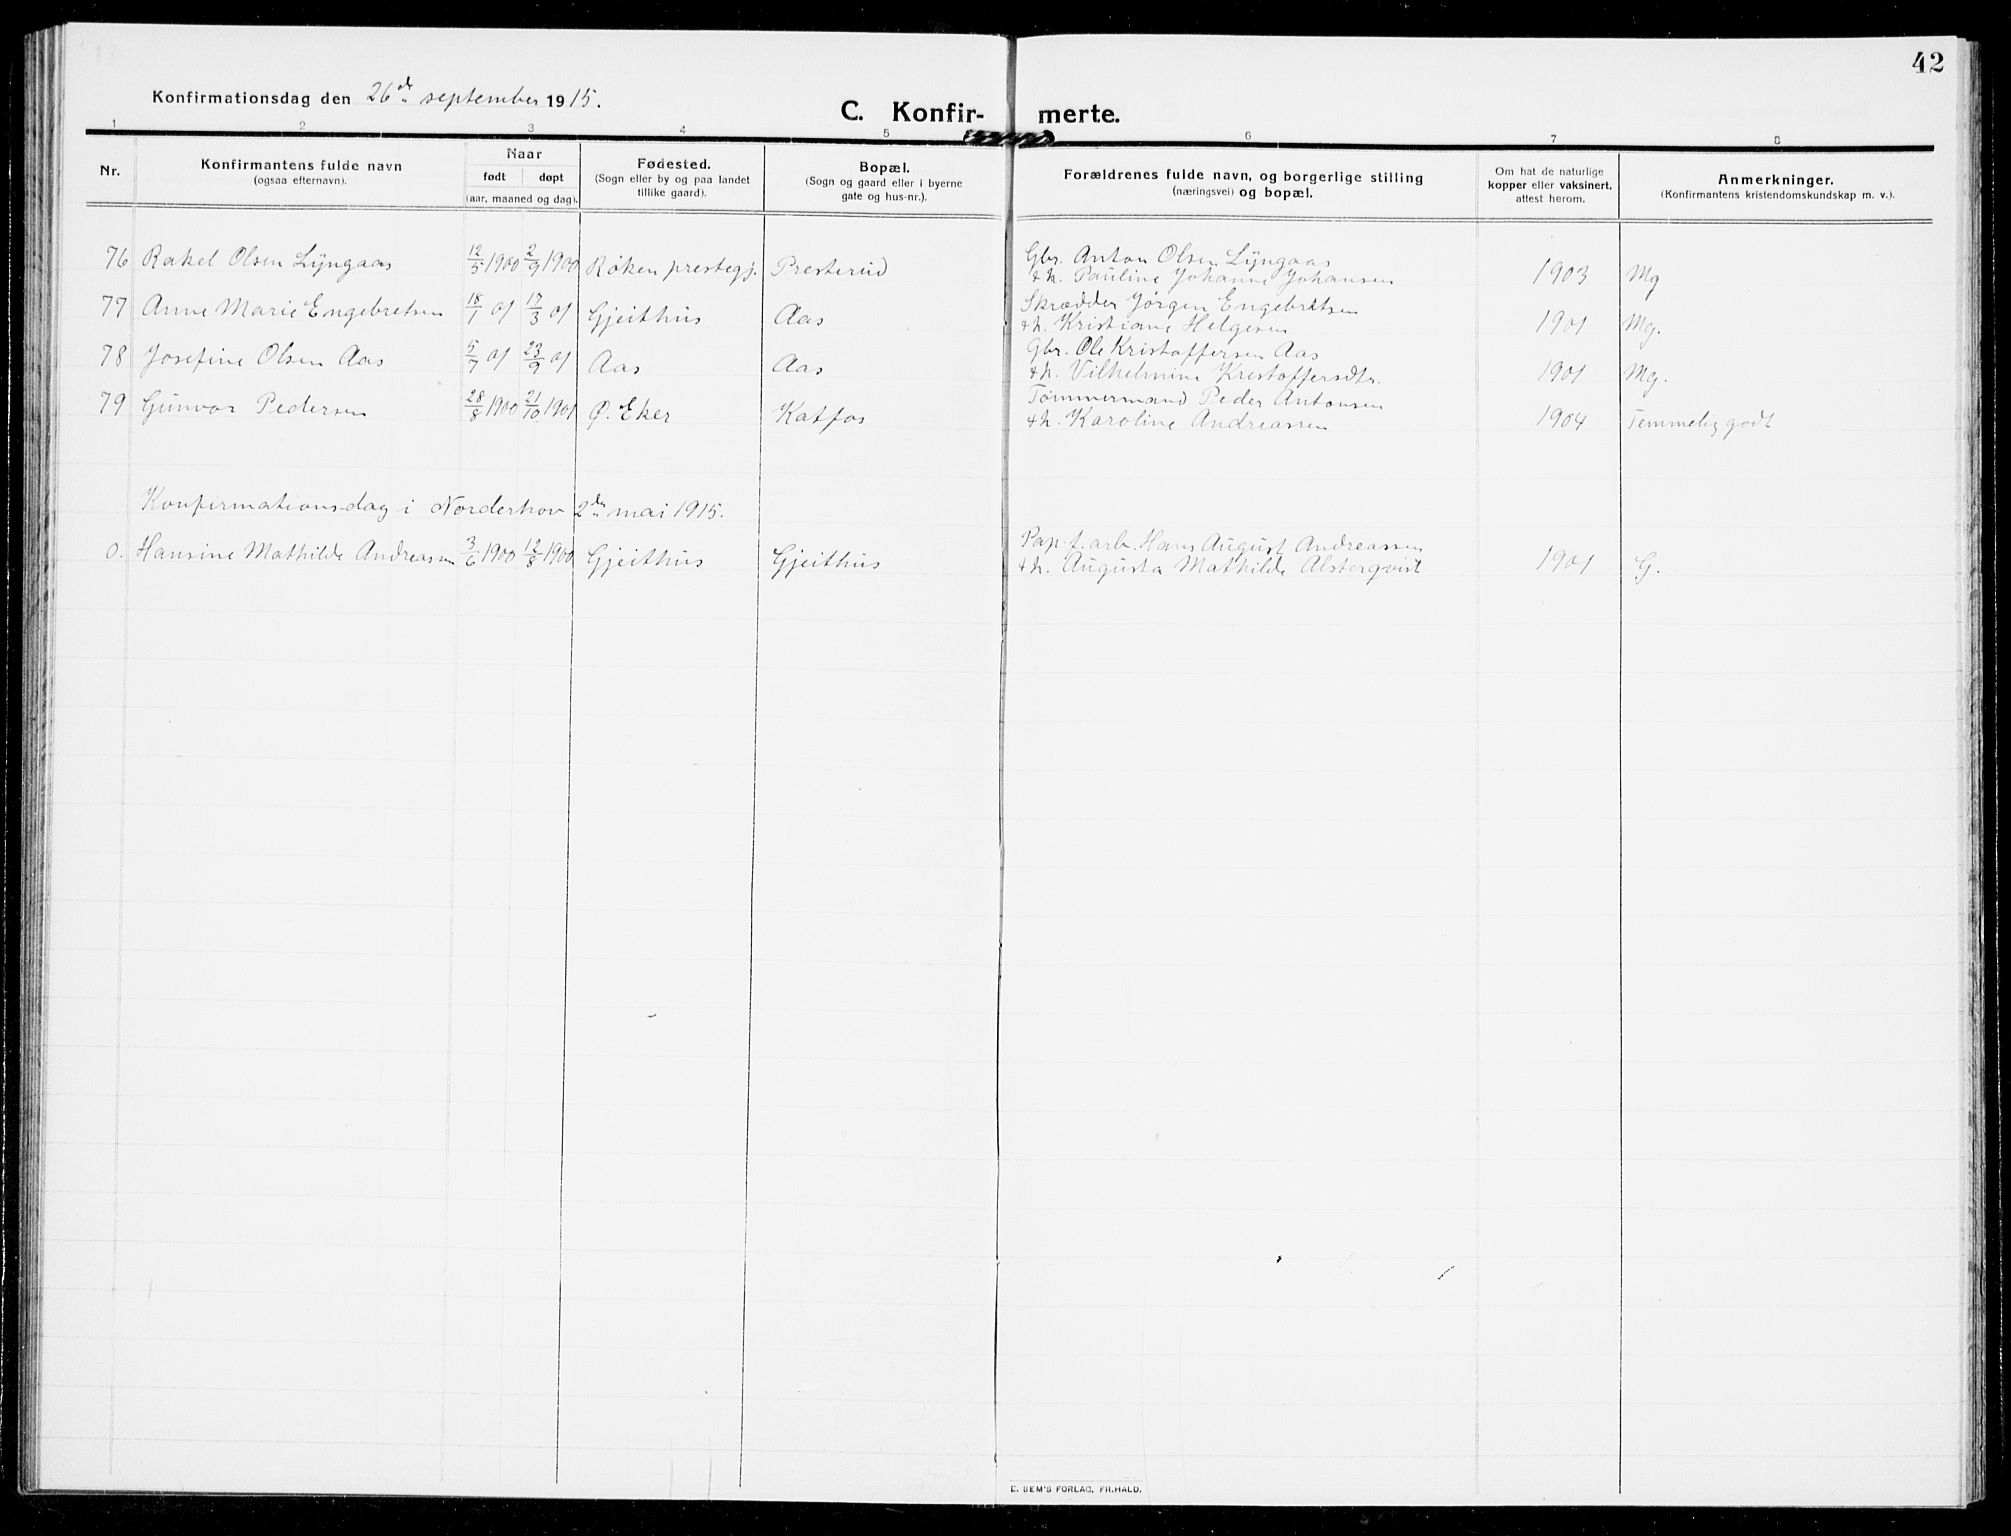 42
Konfirmationsdag den 26de september 1915.
C. Konfir- merte.
1 2 3 4 5 6 7 8
Nr.
Konfirmantens fulde navn
(ogsaa efternavn).
Naar
født døpt
(aar, maaned og dag).
Fødested.
(Sogn eller by og paa landet
tillike gaard).
Bopæl.
(Sogn og gaard eller i byerne
gate og hus-nr.).
Forældrenes fulde navn, og borgerlige stilling
(næringsvei) og bopæl.
Om hat de naturlige
kopper eller vaksinert,
attest herom.
Anmerkninger.
(Konfirmantens kristendomskundskap m. v.).
76 Rakel Olsen Lyngaas 12/5 1900 2/9 1900 Røken prestegj. Presterud Gbr. Anton Olsen Lyngaas
& h. Pauline Johanne Johansen 1903 Mg
77 Anne Marie Engebretsen 18/1 01 17/3 01 Gjeithus Aas Skrædder Jørgen Engebretsen
& h. Kristiane Helgesen 1901 Mg.
78 Josefine Olsen Aas 5/7 01 23/9 01 Aas Aas Gbr. Ole Kristoffersen Aas
& h. Vilhelmine Kristoffersdtr. 1901 Mg.
79 Gunvor Pedersen 28/8 1900 21/10 1901 Ø. Eker Katfos Tømmermand Peder Antonsen
& h. Karoline Andreassen 1904 Temmelig godt
Konfirmationsdag i Norderhov 2den mai 1915.
0. Hansine Mathilde Andreassen 3/6 1900 12/8 1900 Gjeithus Gjeithus Pap. f. arb. Hans August Andreassen
& h. Augusta Mathilde Alsterqvist 1901 G.
E. SEM'S FORLAG, FR.HALD.